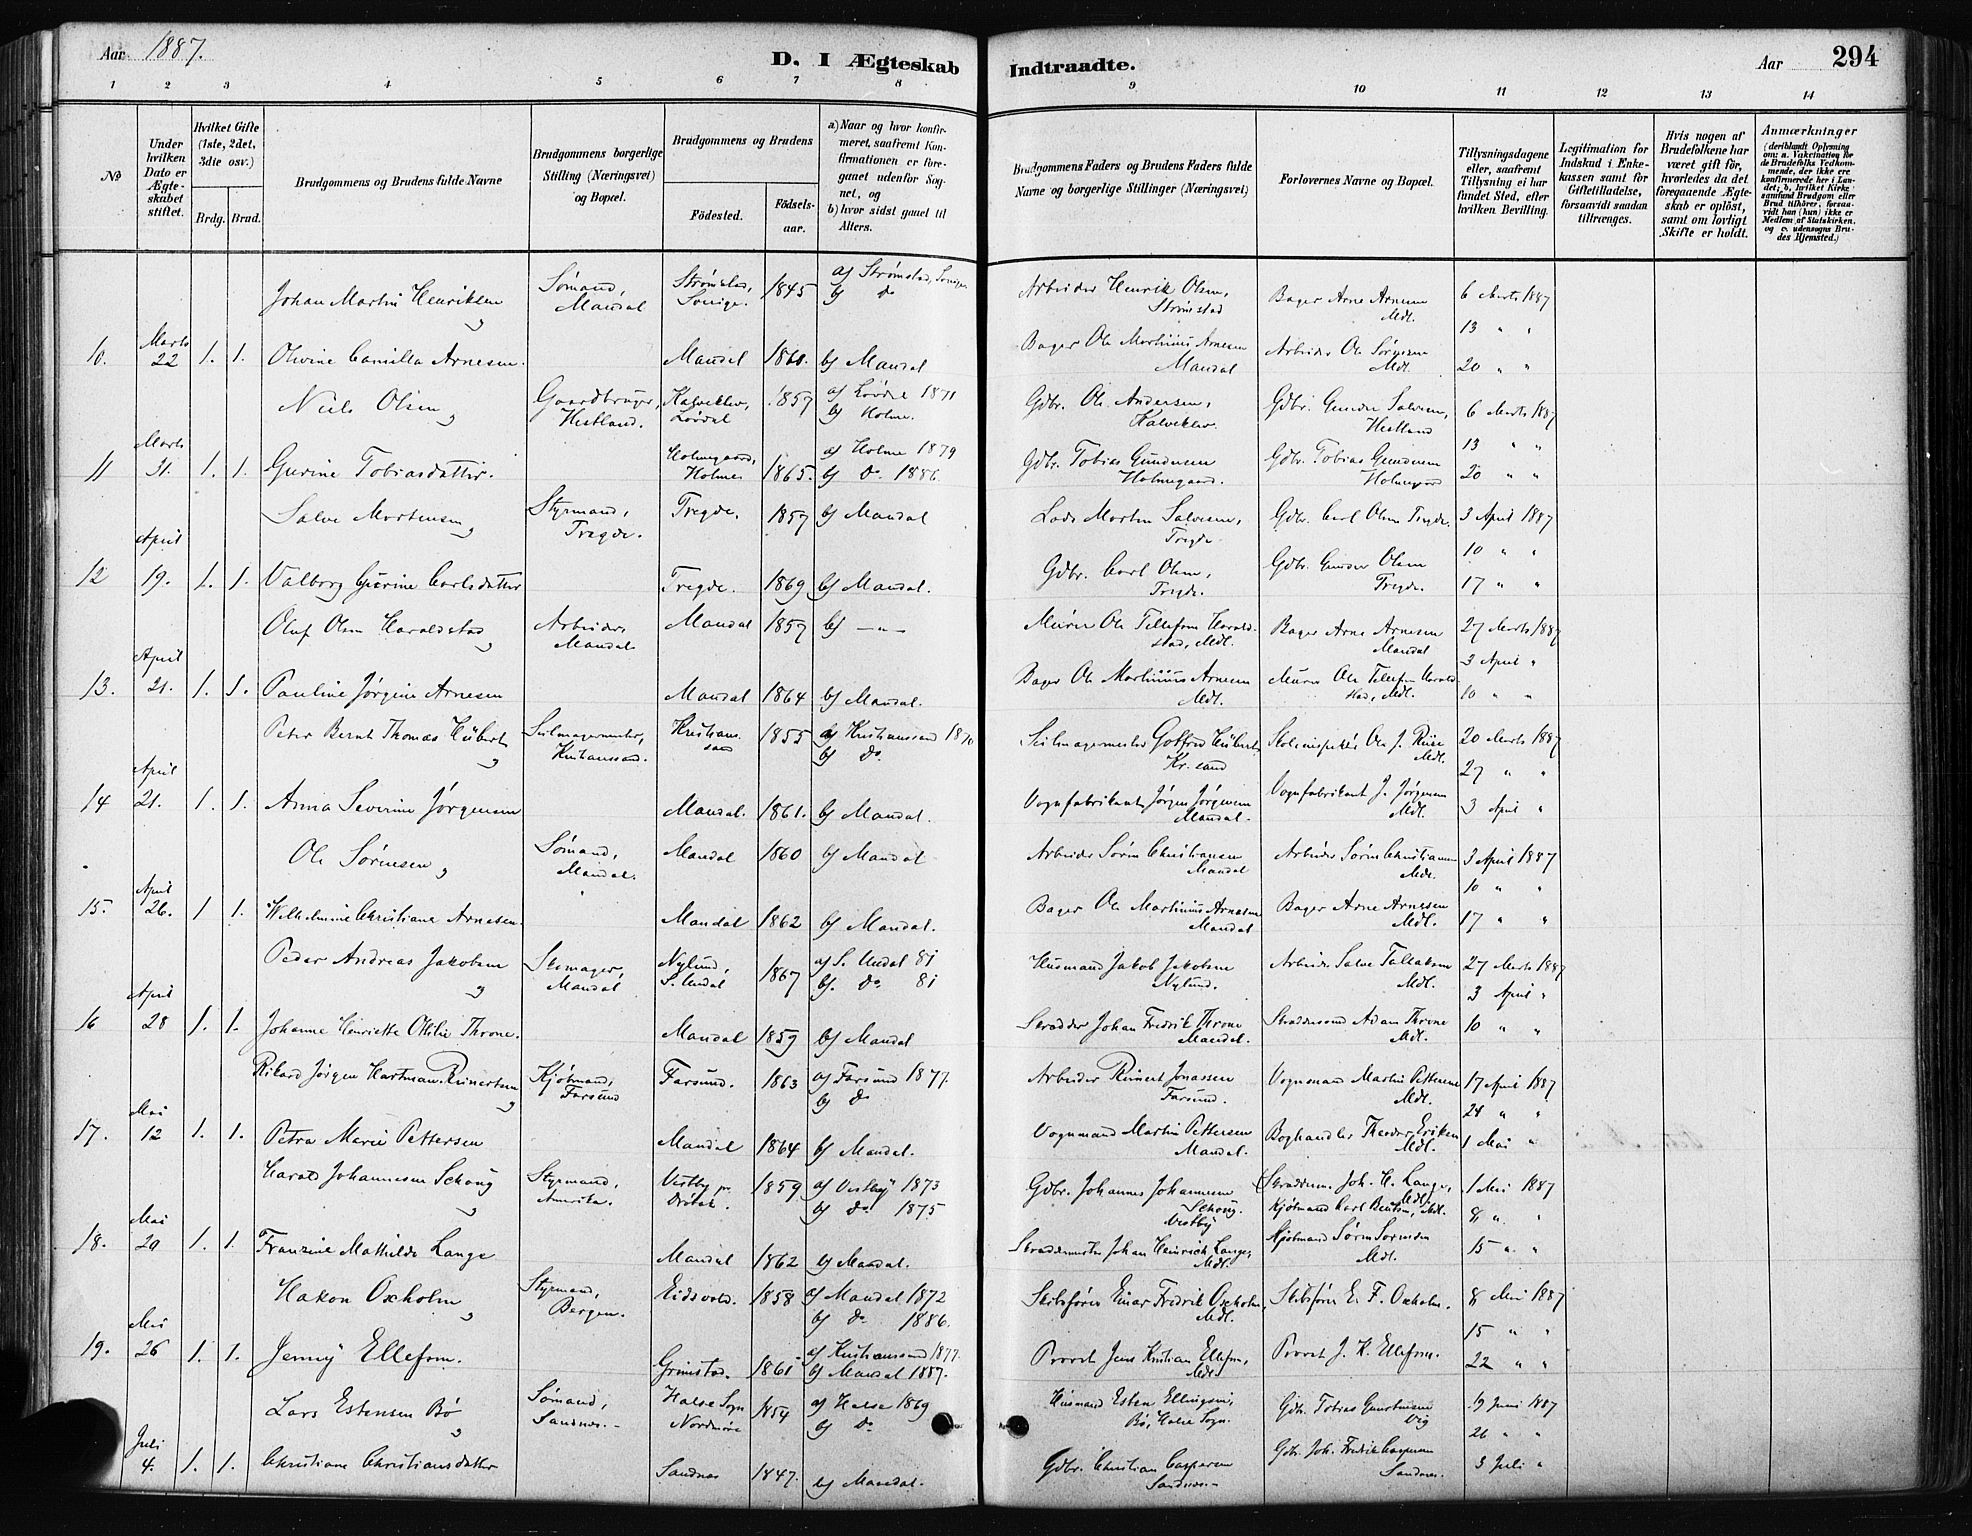 Aar 1887. D. I Ægteskab Indtraadte. Aar 294
1 2 3 4 5 6 7 8 9 10 11 12 13 14
No
Under hvilken Dato er Ægteskabet stiftet.
Hvilket Gifte (1ste, 2det, 3die osv.)
Brdg. Brud.
Brudgommens og Brudens fulde Navne
Brudgommens borgerlige Stilling (Næringsvei) og Bopæl.
Brudgommens og Brudens
Födested. Födselsaar.
a) Naar og hvor konfirmeret, saafremt Konfirmationen er foregaaet udenfor Sognet, og
b) hvor sidst gaaet til Alters.
Brudgommens Faders og Brudens Faders fulde Navne og borgerlige Stillinger (Næringsvei)
Forlovernes Navne og Bopæl.
Tillysningsdagene eller, saafremt Tillysning ei har fundet Sted, efter hvilken Bevilling.
Legitimation for Indskud i Enkekassen samt for Giftetilladelse, forsaavidt saadan tiltrænges.
Hvis nogen af Brudefolkene har været gift för, hvorledes da det foregaaende Ægteskab er oplöst, samt om lovligt Skifte er holdt.
Anmærkninger (deriblandt Oplysning om: a. Vakcination for de Brudefolks Vedkommende, der ikke ere konfirmerede her i Landet; b. hvilket Kirkesamfund Brudgom eller Brud tilhörer, forsaavidt han (hun) ikke er Medlem af Statskirken, og c. udensogns Brudes Hjemsted.)
Johan Martin Henriksen Sømand, Mandal Strømstad, Sverige. 1845 a) Strømstad, Sverige b) Do Arbeider Henrik Olsen, Strømstad Bager Arne Arnesen Mdl. 6 Marts 1887
13 " "
10. Marts 22 1. 1. Olivine Camilla Arnesen. Mandal 1860. b) Mandal Bager Ole Martinius Arnesen Mandal Arbeider Ole Sørensen Mdl. 20 " "
Niels Olsen Gaardbruger, Hestland. Kalveklev, 1857 a) 1871 b) Holme. Gdbr. Ole Andersen, Kalveklev Gdbr. Gunder Salvesen, Hestland 6 Marts 1887
13 " "
11 Marts 31. 1. 1. Gurine Tobiasdatter. Holmegaard, Holme 1865. a) Holme 1879 b) Do. 1886. Gdbr. Tobias Gundersen Holmegaard. Gdbr. Tobias Gundersen Holmegaard 20 " "
Salve Mortensen Styrmand, Tregde. Tregde. 1857 b) Mandal Lods Morten Salvesen, Tregde. Gdbr. Carl Olsen Tregde. 3 April 1887
10 " "
12 April 19. 1. 1. Valborg Gurine Carlsdatter Tregde. 1869 b) Mandal. Gdbr. Carl Olsen, Tregde. Gdbr. Gunder Olsen Tregde. 17 " "
Oluf Olsen Haraldstad Arbeider, Mandal Mandal 1857 b) — " — Murer Ole Tellefsen Haraldstad, Mdl. Bager Arne Arnesen Mandal 27 Marts 1887
3 April "
13. April 21. 1. 1. Pauline Jørgine Arnesen Mandal 1864 b) Mandal. Bager Ole Martinius Arnesen Mdl. Murer Ole Tellefsen Haraldstad, Mdl. 10 " "
Peter Bernt Thomas Hübert Seilmagermester, Kristianssand. Kristianssand 1855 a) Kristianssand 1870 b) Do. Seilmagermester Gotfred Hübert, Kr. sand Skoleinspektør Ole J. Riise Mdl. 20 Marts 1887
27 " "
14 April 21. 1. 1. Anna Severine Jørgensen Mandal. 1861. b) Mandal. Vognfabrikant Jørgen Jørgensen Mandal. Vognfabrikant J. Jørgensen Mdl. 3 April "
Ole Sørensen Sømand, Mandal. Mandal 1860 b) Mandal Arbeider Søren Christiansen Mandal Arbeider Søren Christiansen Mdl. 3 April 1887
10 " "
15. April 26. 1 1. Wilhelmine Christiane Arnesen. Mandal 1862 b) Mandal. Bager Ole Martinius Arnesen Mandal Bager Arne Arnesen Mdl. 17 " "
Peder Andreas Jakobsen Skomager, Mandal Nylund, S. Undal 1867 a) S. Undal 81 b). Do. 81 Husmand Jakob Jakobsen Nylund. Arbeider Salve Tallaksen Mdl. 27 Marts 1887
3 April "
16 April 28 1. 1. Johanne Henriette Othilie Throne. Mandal 1859 b) Mandal Skrædder Johan Fredrik Throne Mandal. Skræddersvend Adam Throne Mdl. 10 " "
Rikard Jørgen Hartman Reinertsen Kjøbmand, Farsund Farsund. 1863 a) Farsund 1877. b) Do Arbeider Reinert Jonassen Farsund. Vognmand Martin Pettersen Mdl. 17 April 1887
24 " "
17. Mai 12 1. 1. Petra Marie Pettersen Mandal 1864 b) Mandal. Vognmand Martin Pettersen Mandal. Boghandler Theodor Eriksen Mdl. 1 Mai "
Harald Johannesen Schoug Styrmand, Amerika. Vestby pr. Drøbak. 1859 a) Vestby 1873 b) Do. 1875 Gdbr. Johannes Johannesen Schoug. Vestby Skræddem. Joh. H. Lange, Mdl. Kjøbmand Carl Bentsen, Mdl. 1 Mai 1887
8 " "
18. Mai 20 1. 1. Franzine Mathilde Lange Mandal 1862 b) Mandal. Skræddermester Johan Heinrich Lange, Mdl. Kjøbmand Søren Sørensen Mdl. 15 " "
Hakon Oxholm Styrmand, Bergen. Eidsvold. 1858 a) Mandal 1872 b) Do 1886. Skibsfører Einar Fredrik Oxholm, Mdl. Skibsfører E. F. Oxholm. 8 Mai 1887
15 " "
19. Mai 26 1. 1. Jenny Ellefsen. Grimstad. 1861 a) Kristianssand 1877. b) Mandal 1887. Provst Jens Kristian Ellefsen, Mdl Provst J. K. Ellefsen. 22 " "
Lars Estensen Bø Sømand, Sandnes. Halse Sogn Nordmøre 1854 a) Halse 1869 b) Do Husmand Esten Ellingsen, Bø, Halse Sogn. Gdbr. Tobias 19 Juni 1887
26 " "
Juli 4. 1. 1. Christiane Christiansdatter Sandnes 1847. b) Mandal. Gdbr. Christian Caspersen Sandnes. Gdbr. Joh. Fredrik Caspersen Sandnes. 3 Juli "